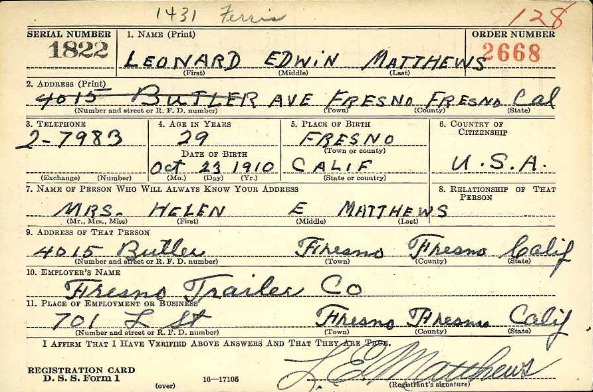 1431 Ferris
128
SERIAL NUMBER 1. NAME (Print) ORDER NUMBER
1822 LEONARD EDWIN MATTHEWS 2668
(First) (Middle) (Last)
2. ADDRESS (Print)
4015 BUTLER AVE FRESNO FRESNO Cal
(Number and street or R. F. D. number) (Town) (County) (State)
3. TELEPHONE 4. AGE IN YEARS 5. PLACE OF BIRTH 6. COUNTRY OF CITIZENSHIP
2-7983 29 FRESNO
DATE OF BIRTH (Town or county)
Oct 23 1910 CALIF U.S.A.
(Exchange) (Number) (Mo.) (Day) (Yr.) (State or country)
7. NAME OF PERSON WHO WILL ALWAYS KNOW YOUR ADDRESS 8. RELATIONSHIP OF THAT PERSON
MRS. HELEN E MATTHEWS
(Mr., Mrs., Miss) (First) (Middle) (Last)
9. ADDRESS OF THAT PERSON
4015 Butler Fresno Fresno Calif
(Number and street or R. F. D. number) (Town) (County) (State)
10. EMPLOYER'S NAME
Fresno Trailer Co
11. PLACE OF EMPLOYMENT OR BUSINESS
701 L St Fresno Fresno Calif
(Number and street or R. F. D. number) (Town) (County) (State)
I AFFIRM THAT I HAVE VERIFIED ABOVE ANSWERS AND THAT THEY ARE TRUE.
L. E. Matthews
REGISTRATION CARD
D. S. S. Form 1 (over) 16—17105 (Registrant's signature)